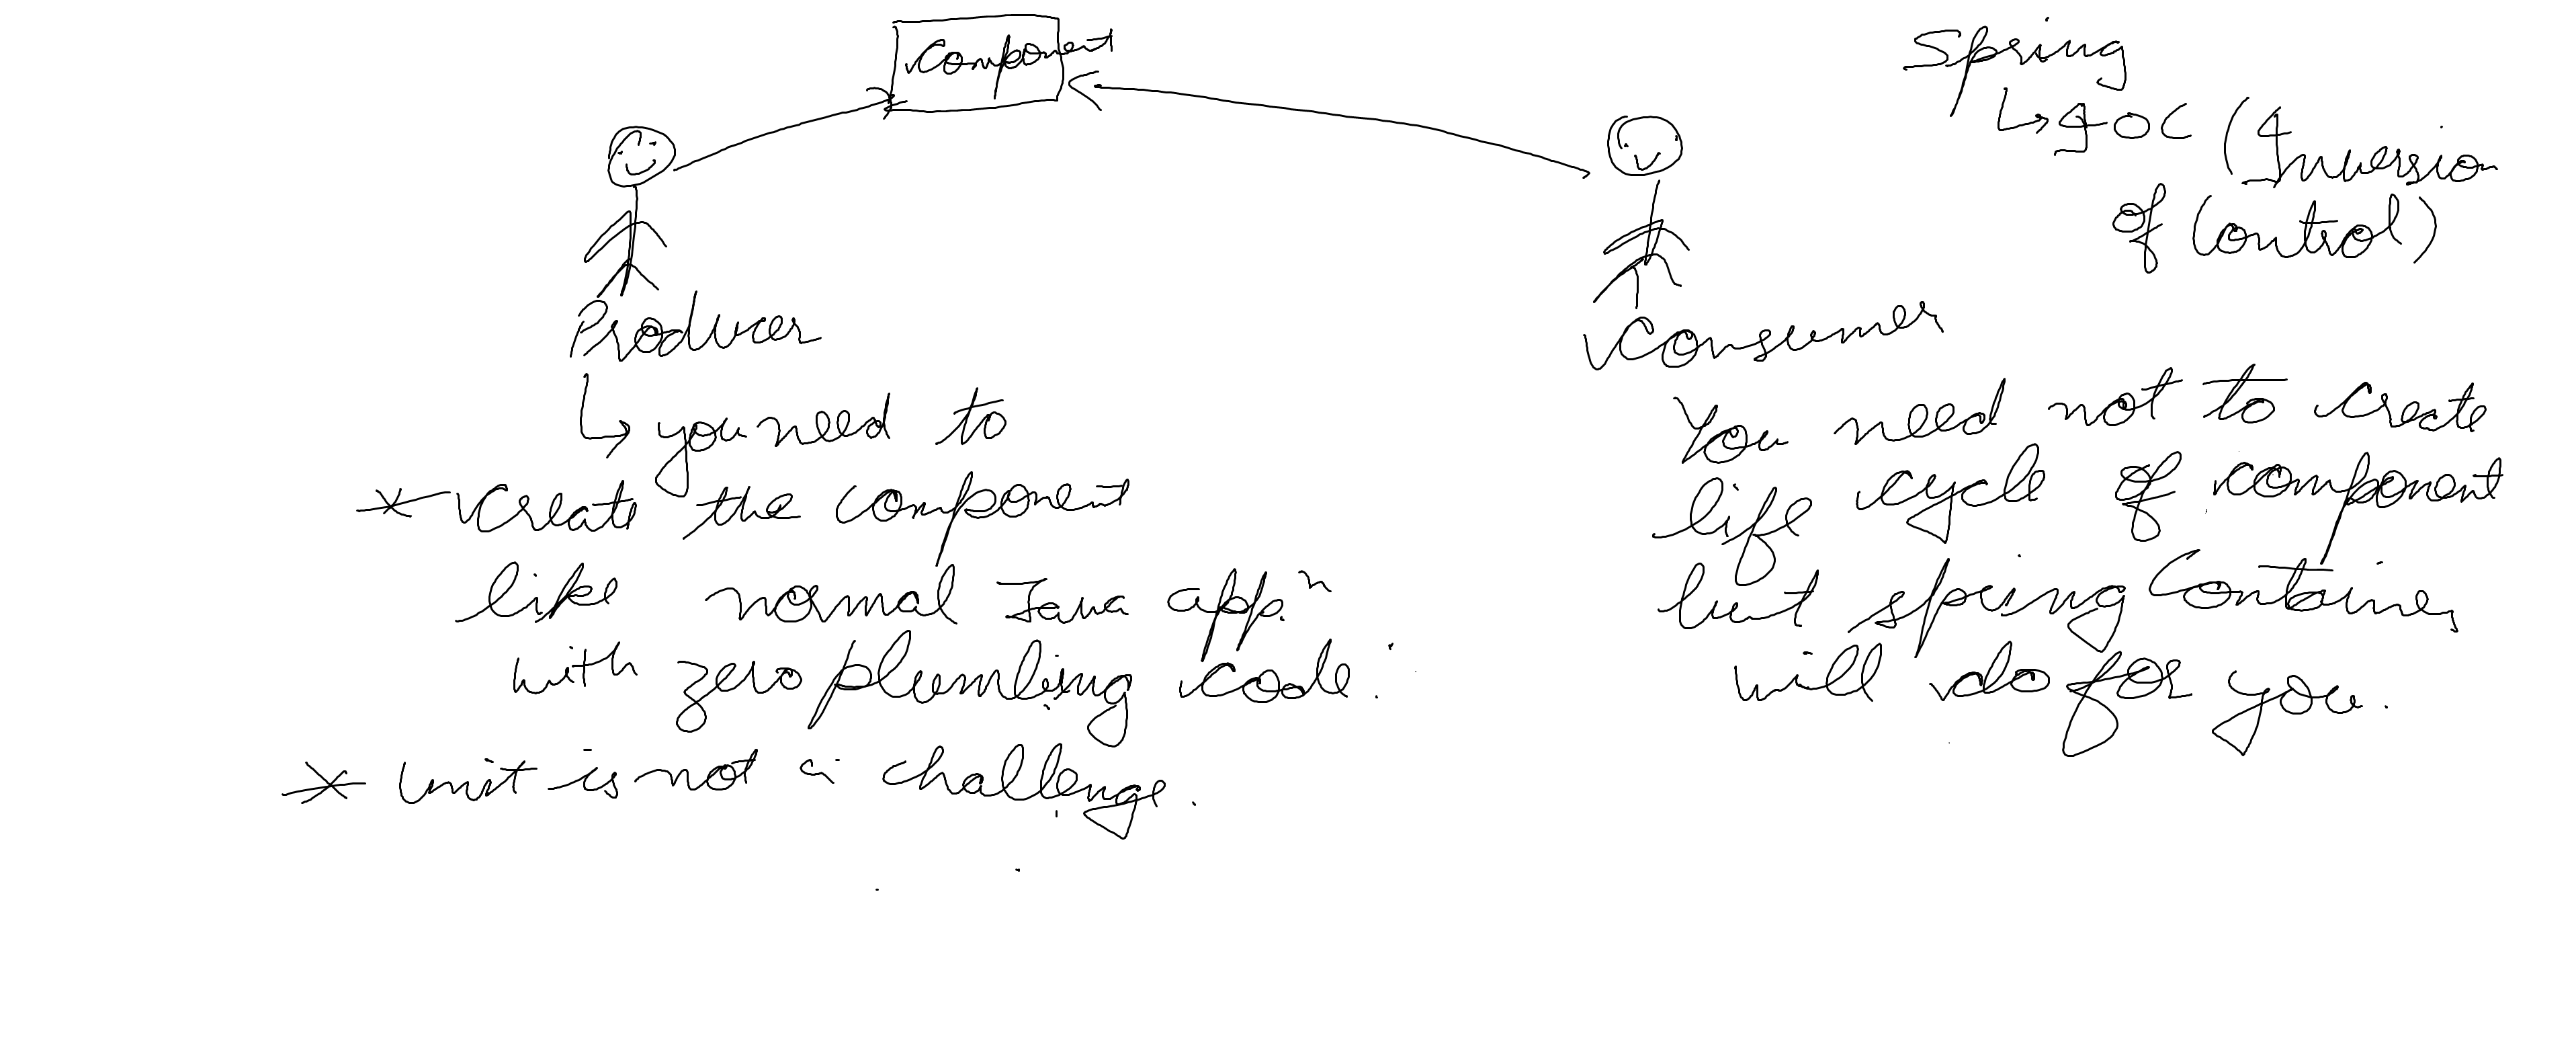 Component
Spring
↳ IOC (Inversion
of Control)
Producer
↳ you need to
* Create the component
like normal Java appn
with zero plumbing code.
* Unit is not a challenge.
Consumer
You need not to create
life cycle of component
but spring Container
will do for you.